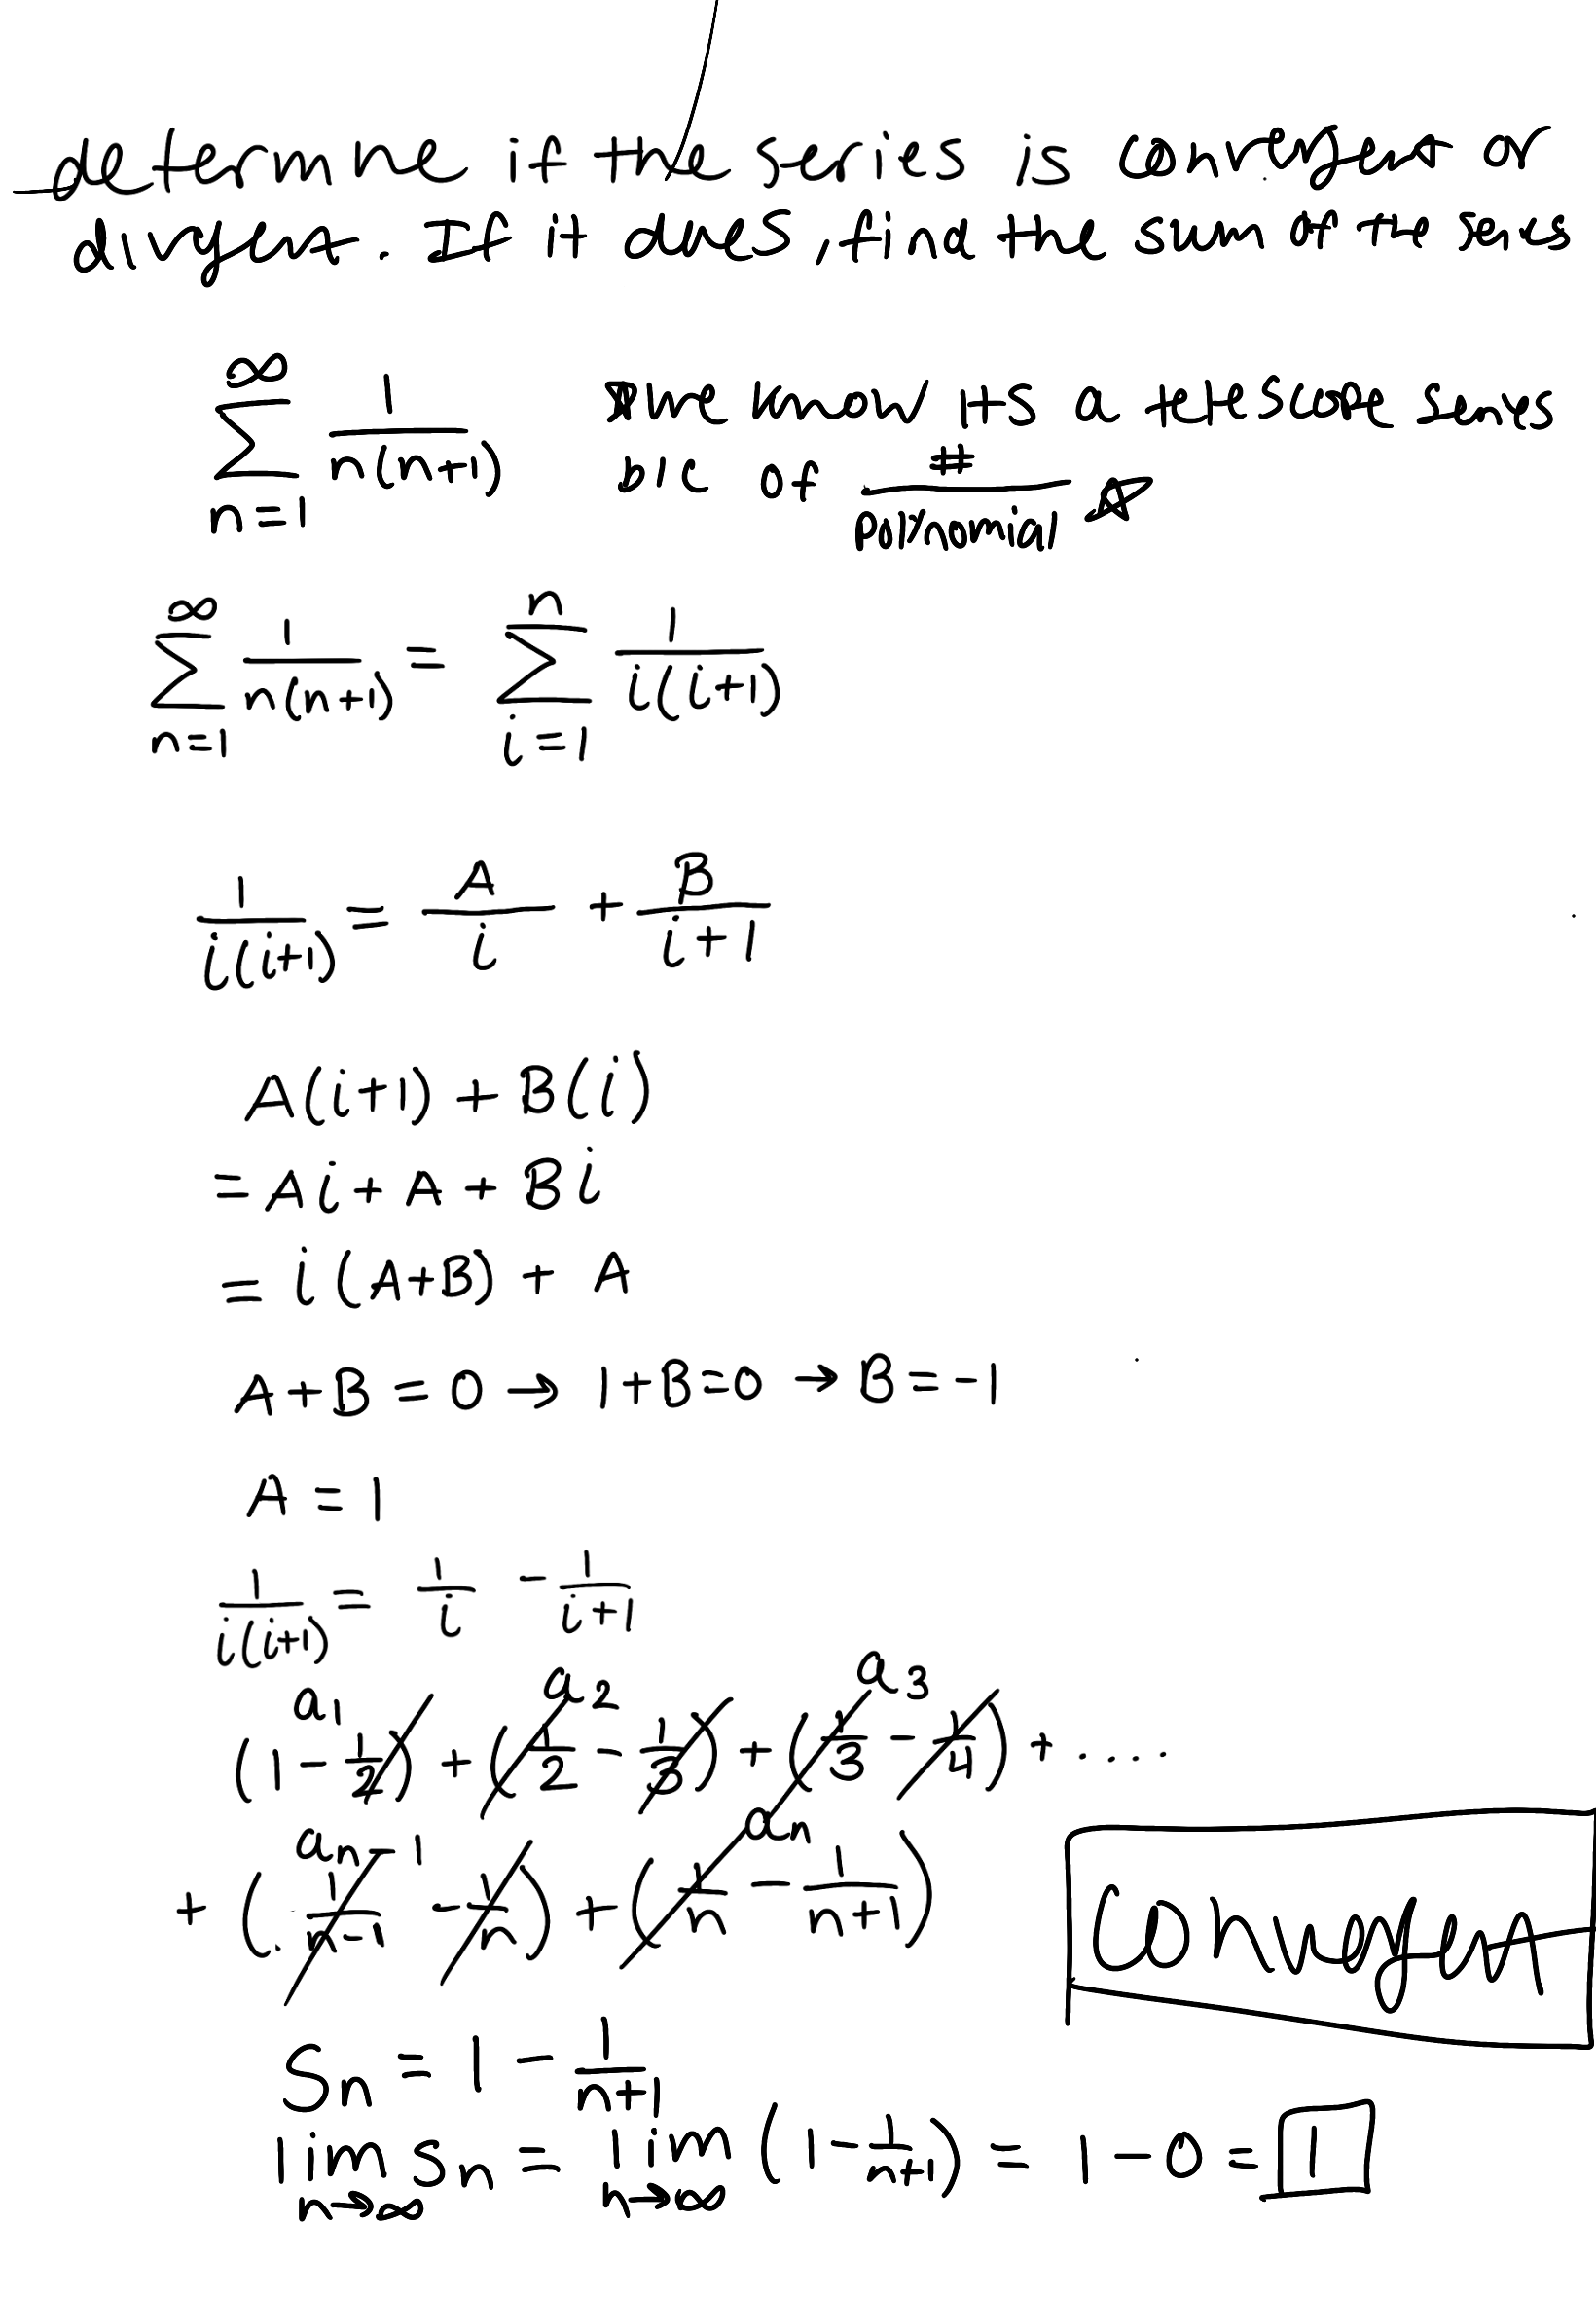 determine if the series is convergent or
divergent. If it does, find the sum of the series
∞ ∑ n=1 1/n(n+1) ☆we know its a telescope series
b/c of #/polynomial ☆
∞ ∑ n=1 1/n(n+1) = n ∑ i=1 1/i(i+1)
1/i(i+1) = A/i + B/i+1
A(i+1) + B(i)
= Ai + A + Bi
= i(A+B) + A
A+B = 0 → 1+B=0 → B=-1
A = 1
1/i(i+1) = 1/i - 1/i+1
a1 a2 a3
(1 - 1/2) + (1/2 - 1/3) + (1/3 - 1/4) + .....
an-1 an
+ (1/n-1 - 1/n) + (1/n - 1/n+1)
Convergent
Sn = 1 - 1/n+1
lim n→∞ Sn = lim n→∞ (1 - 1/n+1) = 1 - 0 = 1